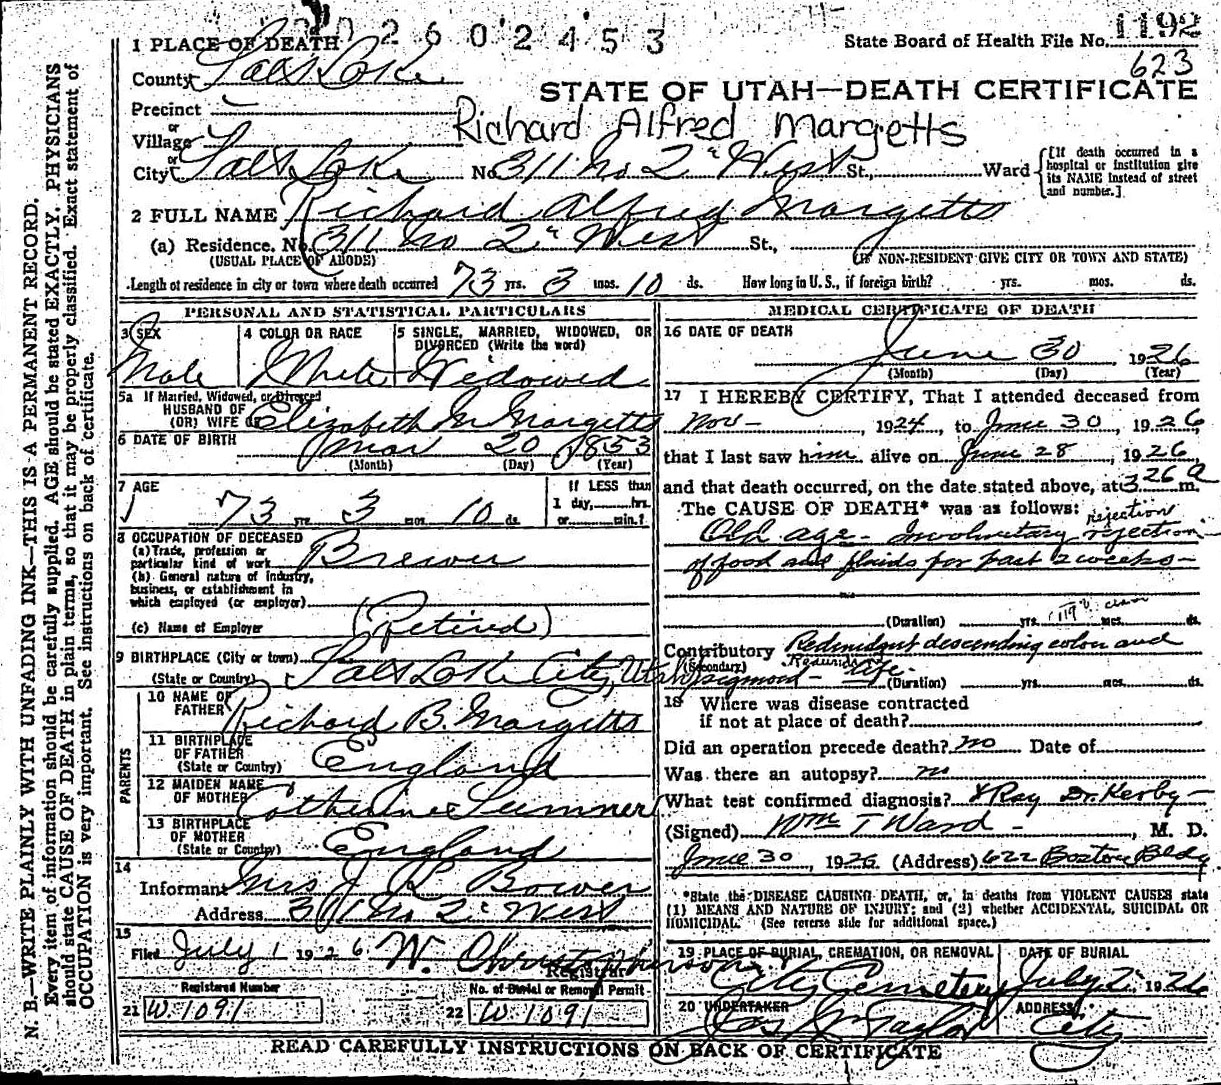 2602453
1 PLACE OF DEATH
State Board of Health File No. 1192
County Salt Lake
623
STATE OF UTAH—DEATH CERTIFICATE
Precinct
Richard Alfred Margetts
or
Village
or
City Salt Lake No 311 No 2" West St., Ward
[If death occurred in a hospital or institution give its NAME instead of street and number.]
2 FULL NAME Richard Alfred Margetts
(a) Residence. No. 311 No 2" West St.,
(USUAL PLACE OF ABODE) (IF NON-RESIDENT GIVE CITY OR TOWN AND STATE)
Length of residence in city or town where death occurred 73 yrs. 3 mos. 10 ds. How long in U. S., if foreign birth? yrs. mos. ds.
PERSONAL AND STATISTICAL PARTICULARS
3 SEX
Male
4 COLOR OR RACE
White
5 SINGLE, MARRIED, WIDOWED, OR
DIVORCED (Write the word)
Widowed
5a If Married, Widowed, or Divorced
HUSBAND OF
(OR) WIFE OF Elizabeth M Margetts
6 DATE OF BIRTH Mar 20 1853
(Month) (Day) (Year)
7 AGE
73 yrs. 3 mos. 10 ds.
If LESS than
1 day, hrs.
or min.?
8 OCCUPATION OF DECEASED
(a) Trade, profession or
particular kind of work Brewer
(b) General nature of industry,
business, or establishment in
which employed (or employer)
(c) Name of Employer (Retired)
9 BIRTHPLACE (City or town)
(State or Country) Salt Lake City, Utah
PARENTS
10 NAME OF
FATHER Richard B. Margetts
11 BIRTHPLACE
OF FATHER
(State or Country) England
12 MAIDEN NAME
OF MOTHER Catherine Sumner
13 BIRTHPLACE
OF MOTHER
(State or Country) England
14
Informant Mrs J L Bower
Address 311 No 2" West
15
Filed July 1 1926 W. Christopherson
Registrar
Registered Number
21 W-1091
No. of Burial or Removal Permit
22 W-1091
MEDICAL CERTIFICATE OF DEATH
16 DATE OF DEATH
June 30 1926
(Month) (Day) (Year)
17 I HEREBY CERTIFY, That I attended deceased from
Nov- , 1924, to June 30, 1926
that I last saw him alive on June 28, 1926,
and that death occurred, on the date stated above, at 3 26 a m.
The CAUSE OF DEATH* was as follows:
rejection
Old age - Involuntary rejection
of food and fluids for past 2 weeks -
(Duration) yrs. mos. ds.
Contributory Redundant descending colon and
(Secondary) Redundant
sigmoid - life (Duration) yrs. mos. ds.
18 Where was disease contracted
if not at place of death?
Did an operation precede death? no Date of
Was there an autopsy? no
What test confirmed diagnosis? XRay Dr. Kerby-
(Signed) Wm T Ward - , M. D.
June 30, 1926 (Address) 622 Boston Bldg
*State the DISEASE CAUSING DEATH, or, in deaths from VIOLENT CAUSES state
(1) MEANS AND NATURE OF INJURY; and (2) whether ACCIDENTAL, SUICIDAL OR
HOMICIDAL. (See reverse side for additional space.)
19 PLACE OF BURIAL, CREMATION, OR REMOVAL
City Cemetery
DATE OF BURIAL
July 2, 1926
20 UNDERTAKER
Jos Wm Taylor
ADDRESS
City
READ CAREFULLY INSTRUCTIONS ON BACK OF CERTIFICATE
N. B.—WRITE PLAINLY WITH UNFADING INK—THIS IS A PERMANENT RECORD.
Every item of information should be carefully supplied. AGE should be stated EXACTLY. PHYSICIANS
should state CAUSE OF DEATH in plain terms, so that it may be properly classified. Exact statement of
OCCUPATION is very important. See instructions on back of certificate.